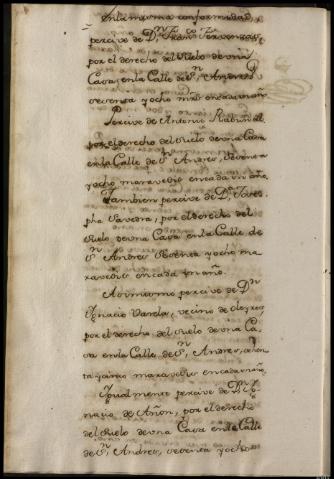 En la misma conformidad,
percive de Dn. Franco.
por el derecho del suelo de una
Casa, en la Calle de Sn. Andres
sesenta y ocho mrs. en cada un año
Percive de Antonio
por el derecho del suelo de una Casa
en la Calle de Sn. Andres, sesenta
y ocho maravedis en cada un año
Tambien percive de Da. Jose-
pha Savedra, por el derecho del
suelo de una Casa en la Calle de
Sn. Andres sesenta y ocho ma-
ravedis en cada un año.
Asimismo percive de Dn.
Ygnacio Varela, vecino de
por el derecho del suelo de una Ca-
sa en la Calle de Sn. Andres,
ta y cinco maravedis en cada un año
Igualmente percive de Dn. Ig-
nacio de Añon, por el derecho
del suelo de una Casa en la Calle
de Sn. Andres, sesenta y ocho